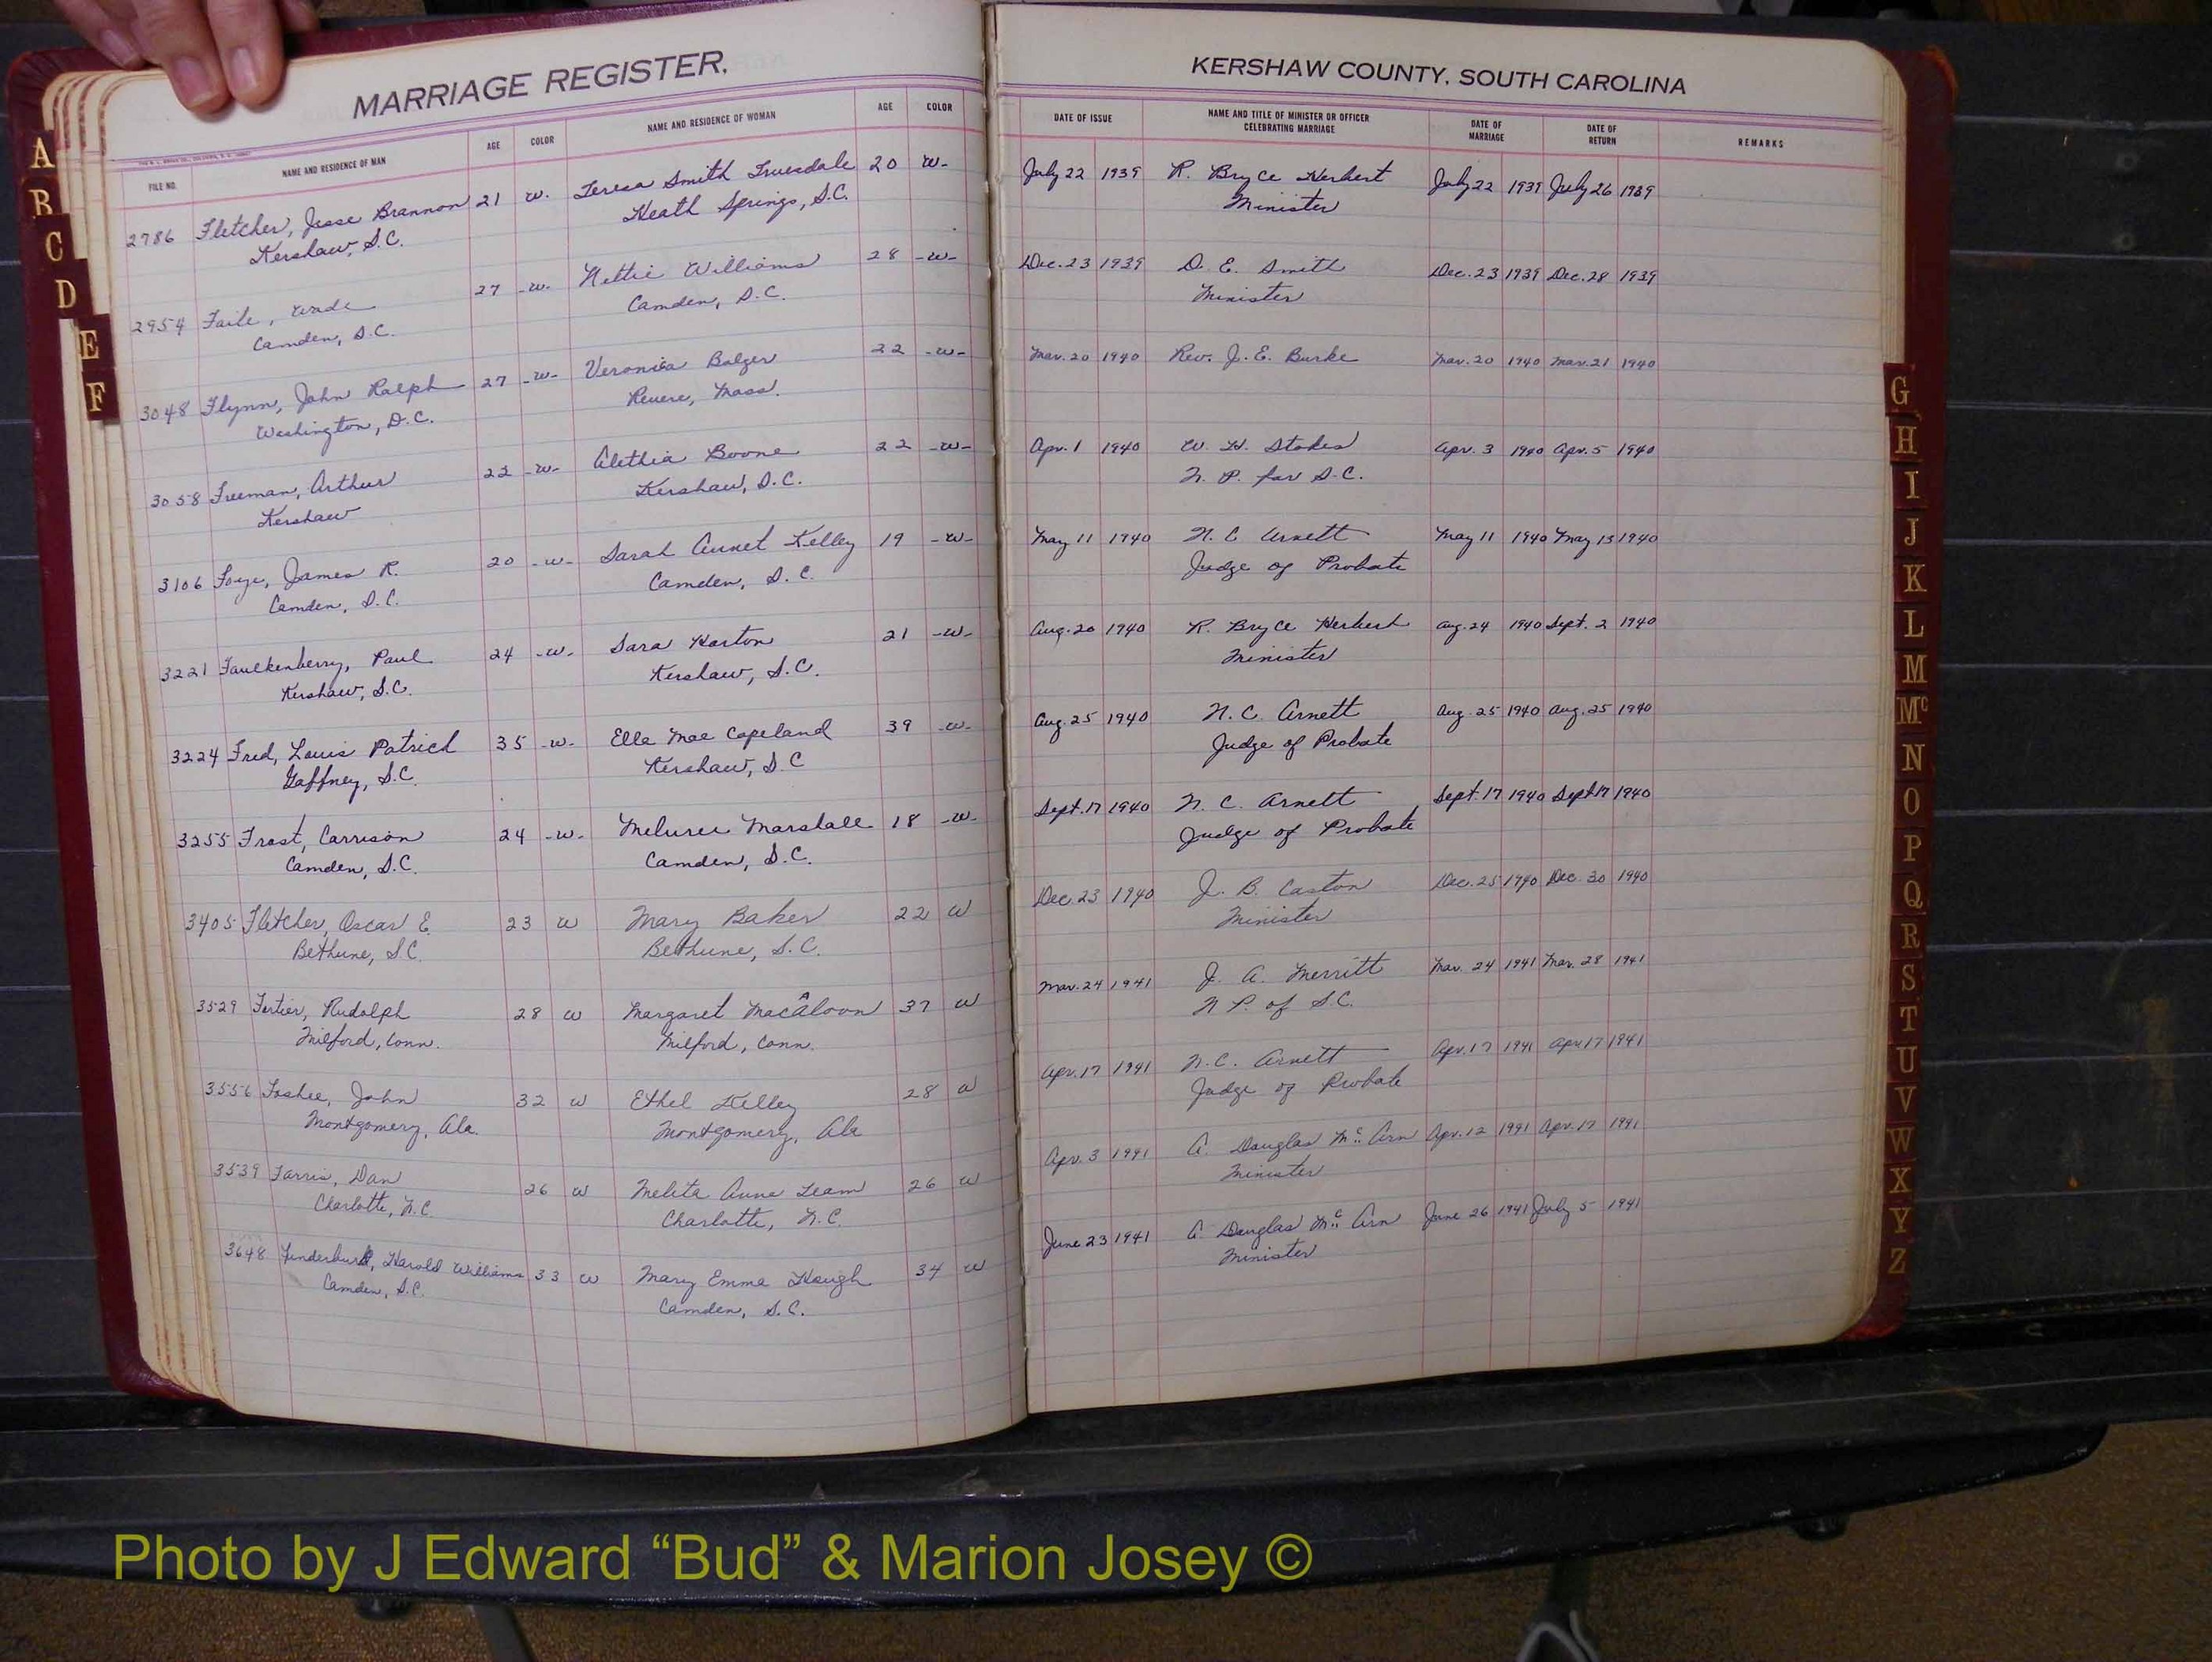 MARRIAGE REGISTER.
KERSHAW COUNTY, SOUTH CAROLINA
FILE NO. NAME AND RESIDENCE OF MAN AGE COLOR NAME AND RESIDENCE OF WOMAN AGE COLOR DATE OF ISSUE NAME AND TITLE OF MINISTER OR OFFICER CELEBRATING MARRIAGE DATE OF MARRIAGE DATE OF RETURN REMARKS
2786 Fletcher, Jesse Brannon 21 w. Teresa Smith Truesdale 20 w- July 22 1939 R. Bryce Herbert July 22 1939 July 26 1939
Kershaw, S.C. Heath Springs, S.C. Minister
2954 Faile, Wade 27 -w- Nettie Williams 28 -w- Dec. 23 1939 D. E. Smith Dec. 23 1939 Dec. 28 1939
Camden, S.C. Camden, S.C. Minister
3048 Flynn, John Ralph 27 -w- Veronica Balger 22 -w- Mar. 20 1940 Rev. J. E. Burke Mar. 20 1940 Mar. 21 1940
Washington, D.C. Revere, Mass.
3058 Freeman, Arthur 22 -w- Alethia Boone 22 -w- Apr. 1 1940 W. H. Stokes Apr. 3 1940 Apr. 5 1940
Kershaw Kershaw, S.C. N. P. for S.C.
3106 James R. 20 -w- Sarah Kelley 19 -w- May 11 1940 N. C Arnett May 11 1940 May 13 1940
Camden, S.C. Camden, S.C. Judge of Probate
3221 Faulkenberry, Paul 24 -w- Sara Horton 21 -w- Aug. 20 1940 R. Bryce Herbert Aug. 24 1940 Sept. 2 1940
Kershaw, S.C. Kershaw, S.C. Minister
3224 Fred, Louis Patrick 35 -w- Ella Mae Copeland 39 -w- Aug. 25 1940 N. C. Arnett Aug. 25 1940 Aug. 25 1940
Gaffney, S.C. Kershaw, S.C Judge of Probate
3255 Frost, Carrison 24 -w- Marshall 18 -w- Sept. 17 1940 N. C. Arnett Sept. 17 1940 Sept 17 1940
Camden, S.C. Camden, S.C. Judge of Probate
3405 Fletcher, Oscar E. 23 w Mary Baker 22 w Dec. 23 1940 J. B. Caston Dec. 25 1940 Dec. 30 1940
Bethune, S.C. Bethune, S.C. Minister
3529 Fortier, Rudolph 28 w Margaret MacAloon 37 w Mar. 24 1941 J. A. Merritt Mar. 24 1941 Mar. 28 1941
Milford, Conn. Milford, Conn. N P. of S.C.
3556 Foshee, John 32 w Ethel Kelley 28 w Apr. 17 1941 N. C. Arnett Apr. 17 1941 Apr 17 1941
Montgomery, Ala. Montgomery, Ala Judge of Probate
3539 Farris, Dan 26 w Melita Anne Team 26 w Apr. 3 1941 A. Douglas McArn Apr. 12 1941 Apr. 17 1941
Charlotte, N.C. Charlotte, N.C. Minister
3648 Funderburk, Harold Williams 33 w Mary Emma Hough 34 w June 23 1941 A. Douglas McArn June 26 1941 July 5 1941
Camden, S.C. Camden, S.C. Minister
A
B
C
D
E
F
G
H
I
J
K
L
M
Mc
N
O
P
Q
R
S
T
U
V
W
X
Y
Z
Photo by J Edward “Bud” & Marion Josey ©